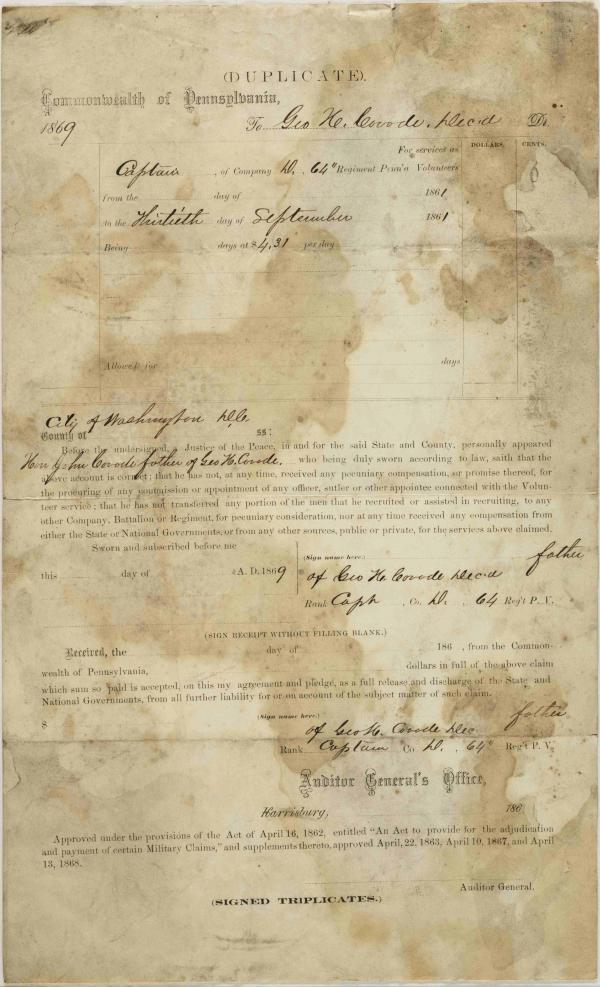 (DUPLICATE).
Commonwealth of Pennsylvania,
1869 To Geo H. Covode, Dec'd Dr.
For services as DOLLARS. CENTS.
Captain, of Company D, 64" Regiment Penn'a Volunteers
from the day of 1861
to the Thirtieth day of September 1861
Being days at $4,31 per day
Allowed for days
City of Washington D.C.
County of ss:
Before the undersigned, a Justice of the Peace, in and for the said State and County, personally appeared
Hon John Covode father of Geo H. Covode, who being duly sworn according to law, saith that the
above account is correct; that he has not, at any time, received any pecuniary compensation, or promise thereof, for
the procuring of any commission or appointment of any officer, sutler or other appointee connected with the Volun-
teer service; that he has not transferred any portion of the men that he recruited or assisted in recruiting, to any
other Company, Battalion or Regiment, for pecuniary consideration, nor at any time received any compensation from
either the State or National Governments, or from any other sources, public or private, for the services above claimed.
Sworn and subscribed before me
(Sign name here.) father
this day of A. D. 1869 of Geo H. Covode Dec'd
Rank Capt, Co. D, 64 Reg't P. V.
(SIGN RECEIPT WITHOUT FILLING BLANK.)
Received, the day of 186 , from the Common-
wealth of Pennsylvania, dollars in full of the above claim
which sum so paid is accepted, on this my agreement and pledge, as a full release and discharge of the State and
National Governments, from all further liability for or on account of the subject matter of such claim.
$ (Sign name here.) father
of Geo H. Covode Dec
Rank Captain Co D, 64" Reg't P. V.
Auditor General's Office,
Harrisburg, 186
Approved under the provisions of the Act of April 16, 1862, entitled "An Act to provide for the adjudication
and payment of certain Military Claims," and supplements thereto, approved April, 22, 1863, April 10, 1867, and April
13, 1868.
Auditor General.
(SIGNED TRIPLICATES.)